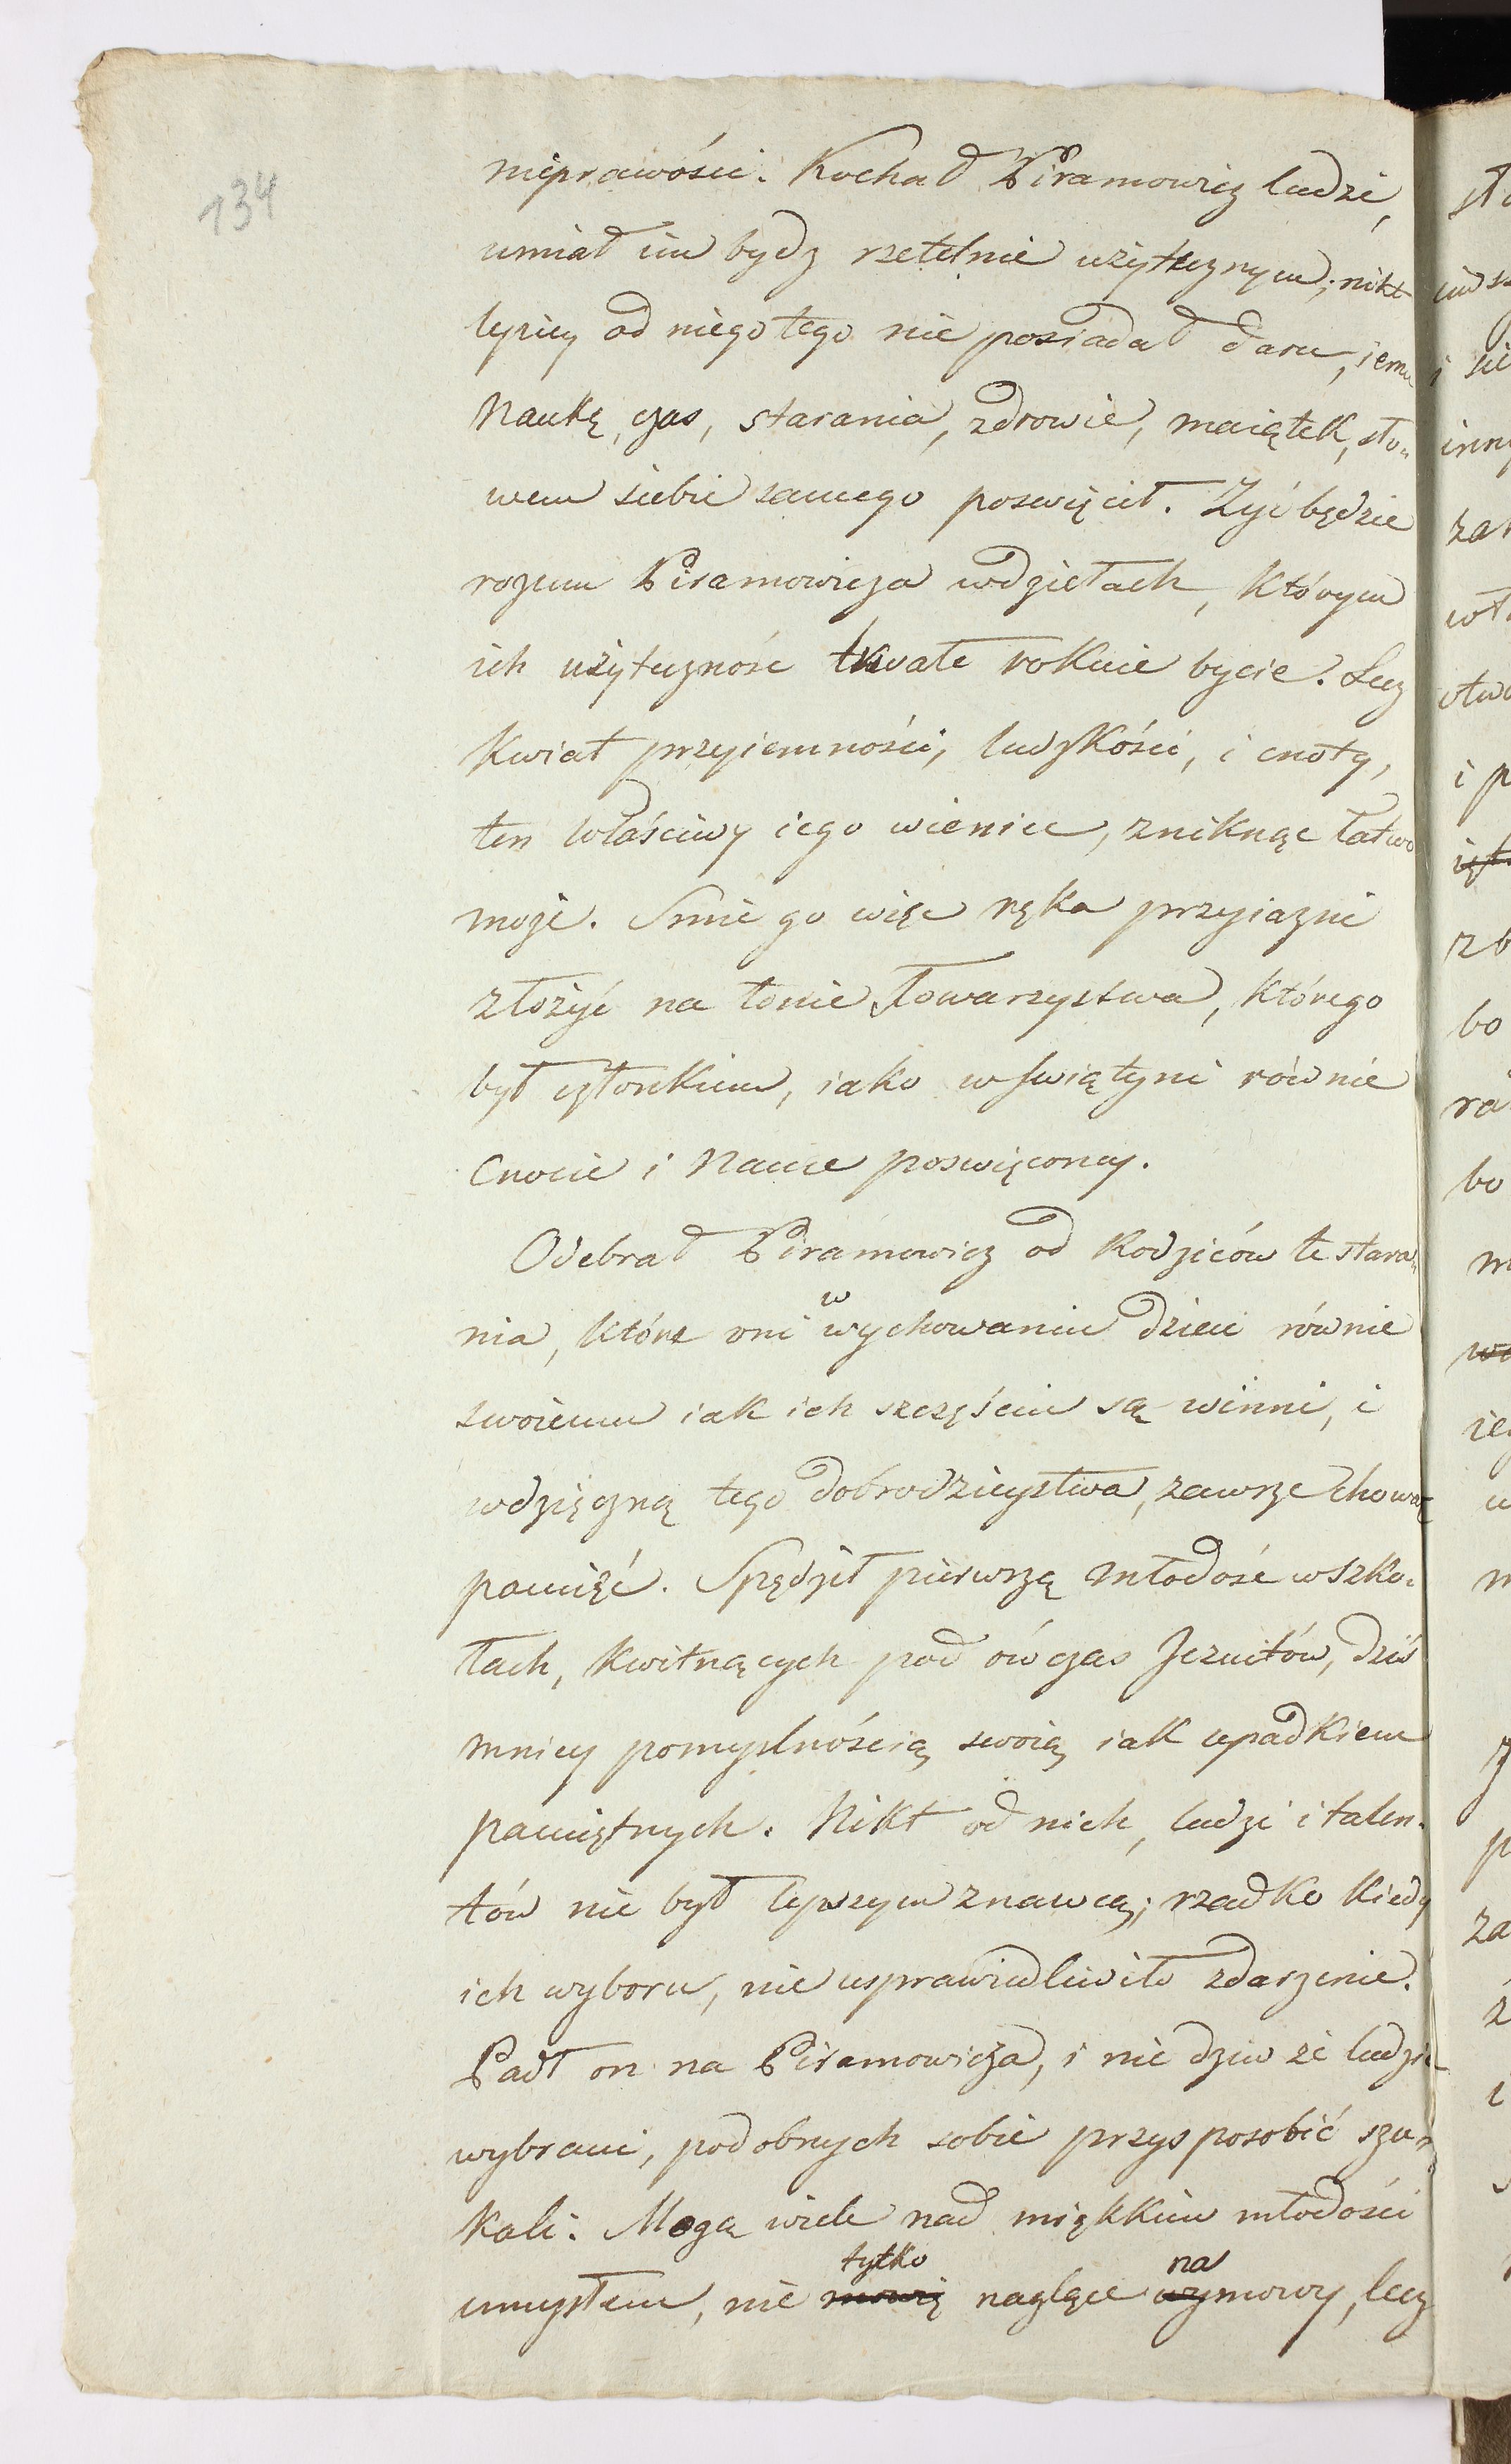 134
nieprawości. Kochał Piramowicz ludzi,
umiał im bydz rzetelnie użytecznym; nikt
lepiey od niego tego nie posiadał daru, iemu
Naukę, czas, starania, zdrowie, maiątek, sło„
wem siebie samego poswięcił. Żyć będzie
rozum Piramowicza wdziełach, którym
ich użyteczność trwałe rokuie bycie. Lecz
kwiat przyiemności, ludzkości, i cnoty,
ten właściwy iego wieniec, zniknąć łatwo
może. Smie go więc ręka przyiazni
złożyć na łonie Towarzystwa, którego
był członkiem, iako w swiątyni równie
Cnocie i Nauce poswięconey.
Odebrał Piramowicz od Rodziców te stara„
nia, które oni w wychowaniu dzieci równie
swoiemu iak ich szczęściu są winni, i
wdzięczną tego dobrodzieystwa, zawsze chował
pamięć. Spędził pierwszą młodość w szko„
łach, kwitnących pod ów czas Jezuitów, dziś
mniey pomyslnością swoią, iak upadkiem
pamiętnych. Nikt od nich, ludzi i talen„
tów nie był lepszym znawcą; rzadko kiedy
ich wyboru, nie usprawiedliwiło zdarzenie.
Padł on na Piramowicza, i nie dziw że ludzie
wybrani, podobnych sobie przysposobić szu„
kali. Mogą wiele nad miękkim młodości
umysłem, nie mowię tylko naglące wy na mowy, lecz